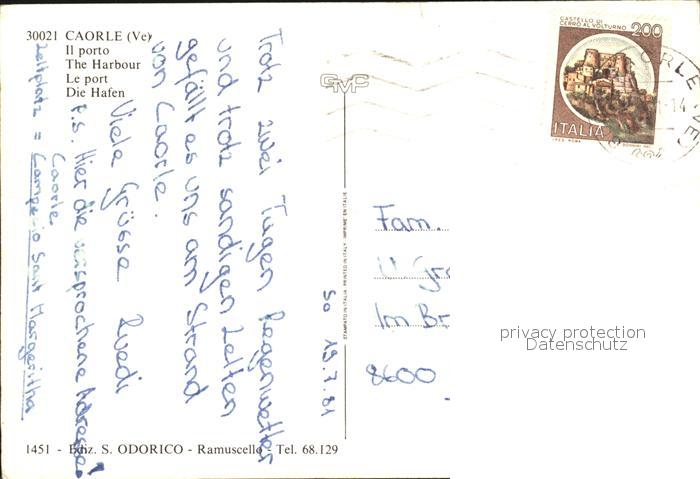 30021 CAORLE (Ve)
Il porto
The Harbour
Le port
Die Hafen
Trotz zwei Tagen Regenwetter
und trotz sandigen Zelten
gefällt es uns am Strand
von Caorle.
Viele Grüsse Ruedi
P.S. Hier die versprochene Adresse:
Caorle
Zeltplatz = Campeggio Sant Margeritha
So 19.7.81
GMC
STAMPATO IN ITALIA PRINTED IN ITALY IMPRIME EN ITALIE
CASTELLO DI
CERRO AL VOLTURNO
200
ITALIA
Fam.
Im Br
8600
privacy protection
Datenschutz
1451 - Ediz. S. ODORICO - Ramuscello - Tel. 68.129